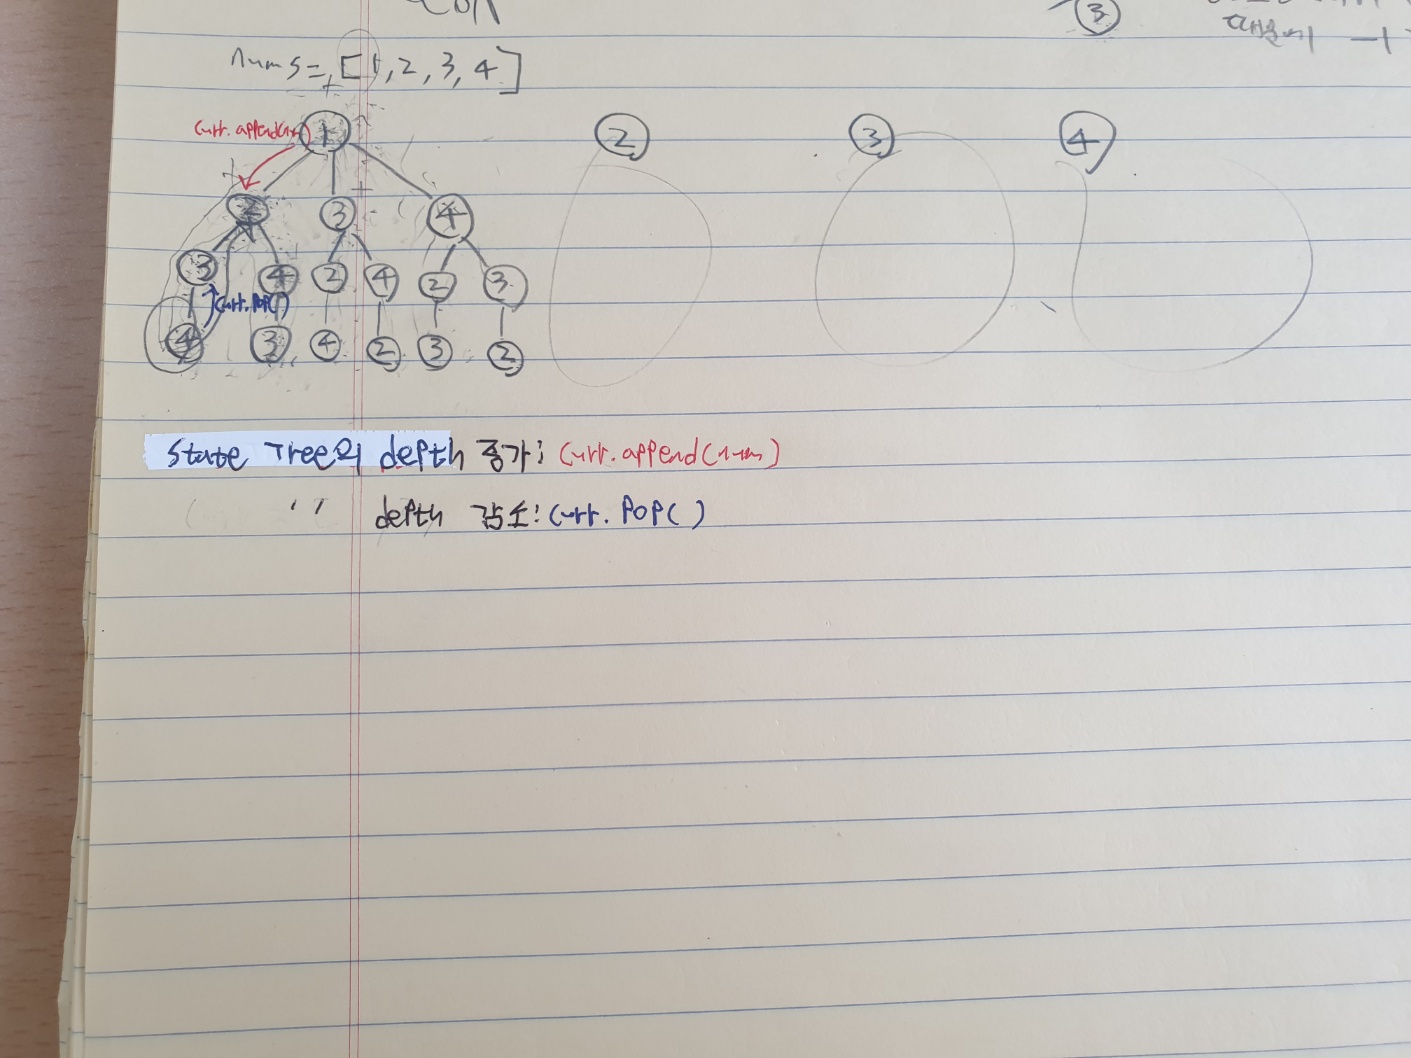 ③
때문에 -1
nums = [1, 2, 3, 4]
curr.append(num)
① ② ③ ④
② ③ ④
③ ④ ② ④ ② ③
curr.pop()
④ ③ ④ ② ③ ②
State Tree의 depth 증가: curr.append(num)
〃 depth 감소: curr.pop()